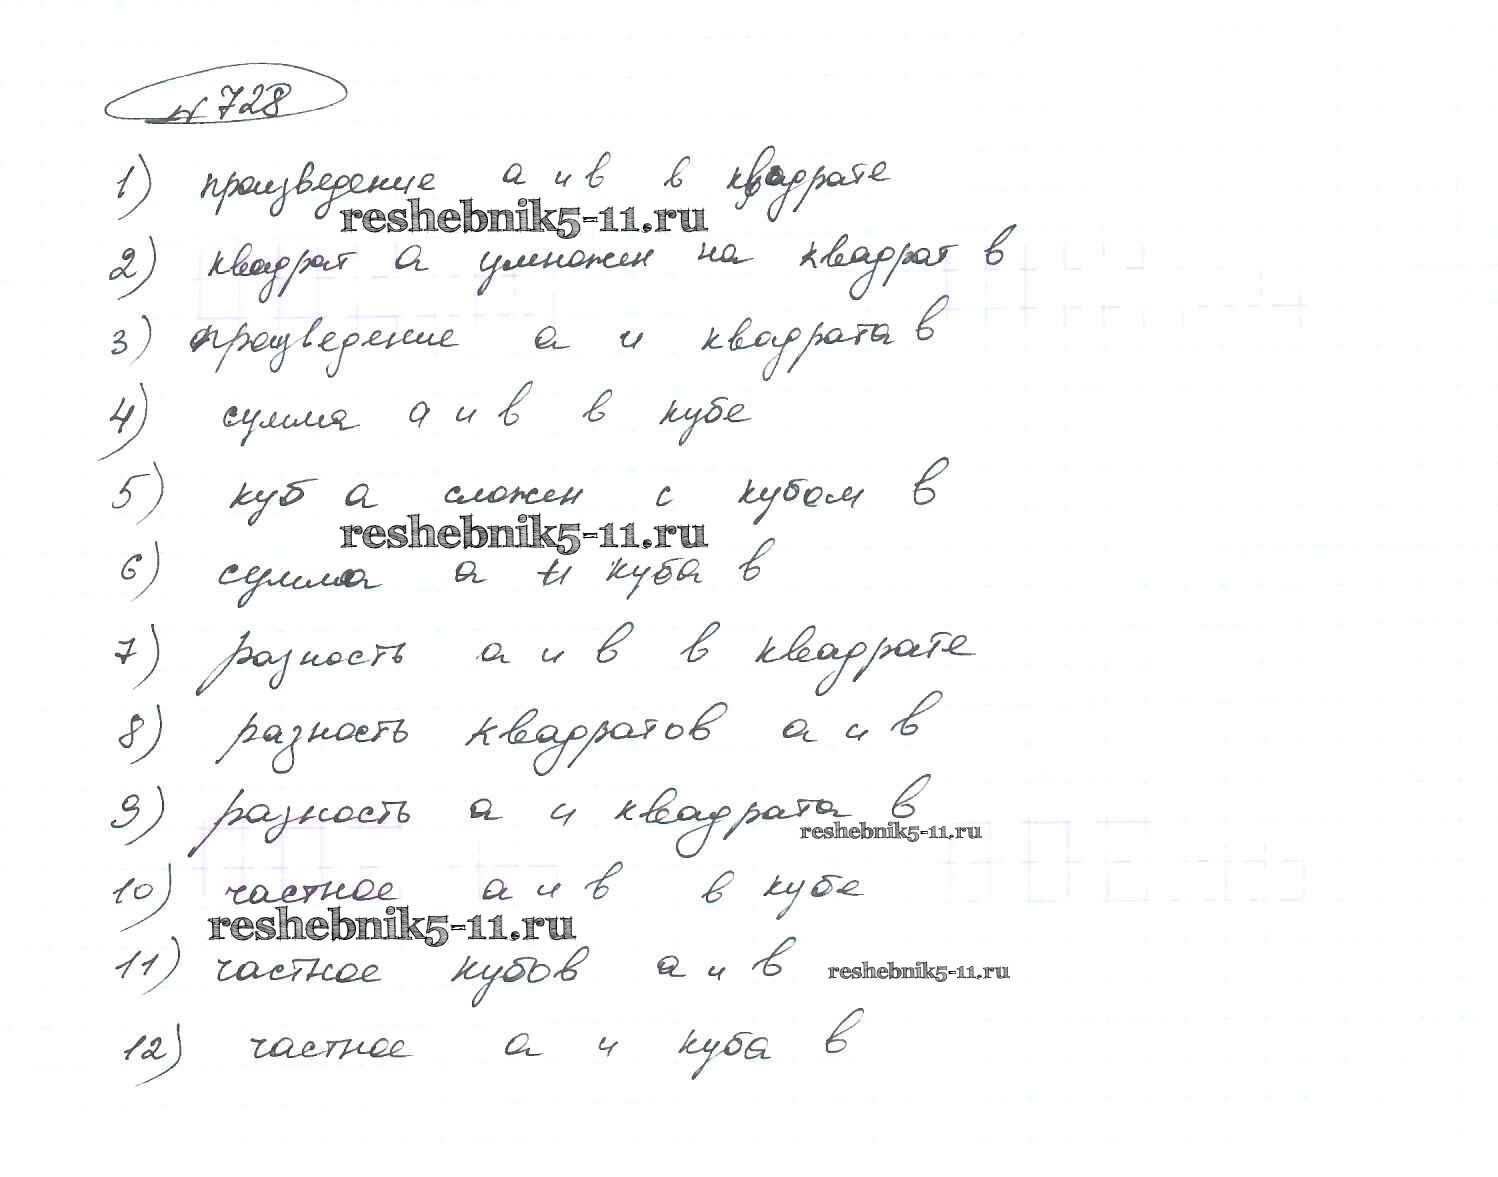 № 728
1) произведение а и в в квадрате
reshebnik5-11.ru
2) квадрат а умножен на квадрат в
3) произведение а и квадрата в
4) сумма а и в в кубе
5) куб а сложен с кубом в
reshebnik5-11.ru
6) сумма а и куба в
7) разность а и в в квадрате
8) разность квадратов а и в
9) разность а и квадрата в
reshebnik5-11.ru
10) частное а и в в кубе
reshebnik5-11.ru
11) частное кубов а и в reshebnik5-11.ru
12) частное а и куба в